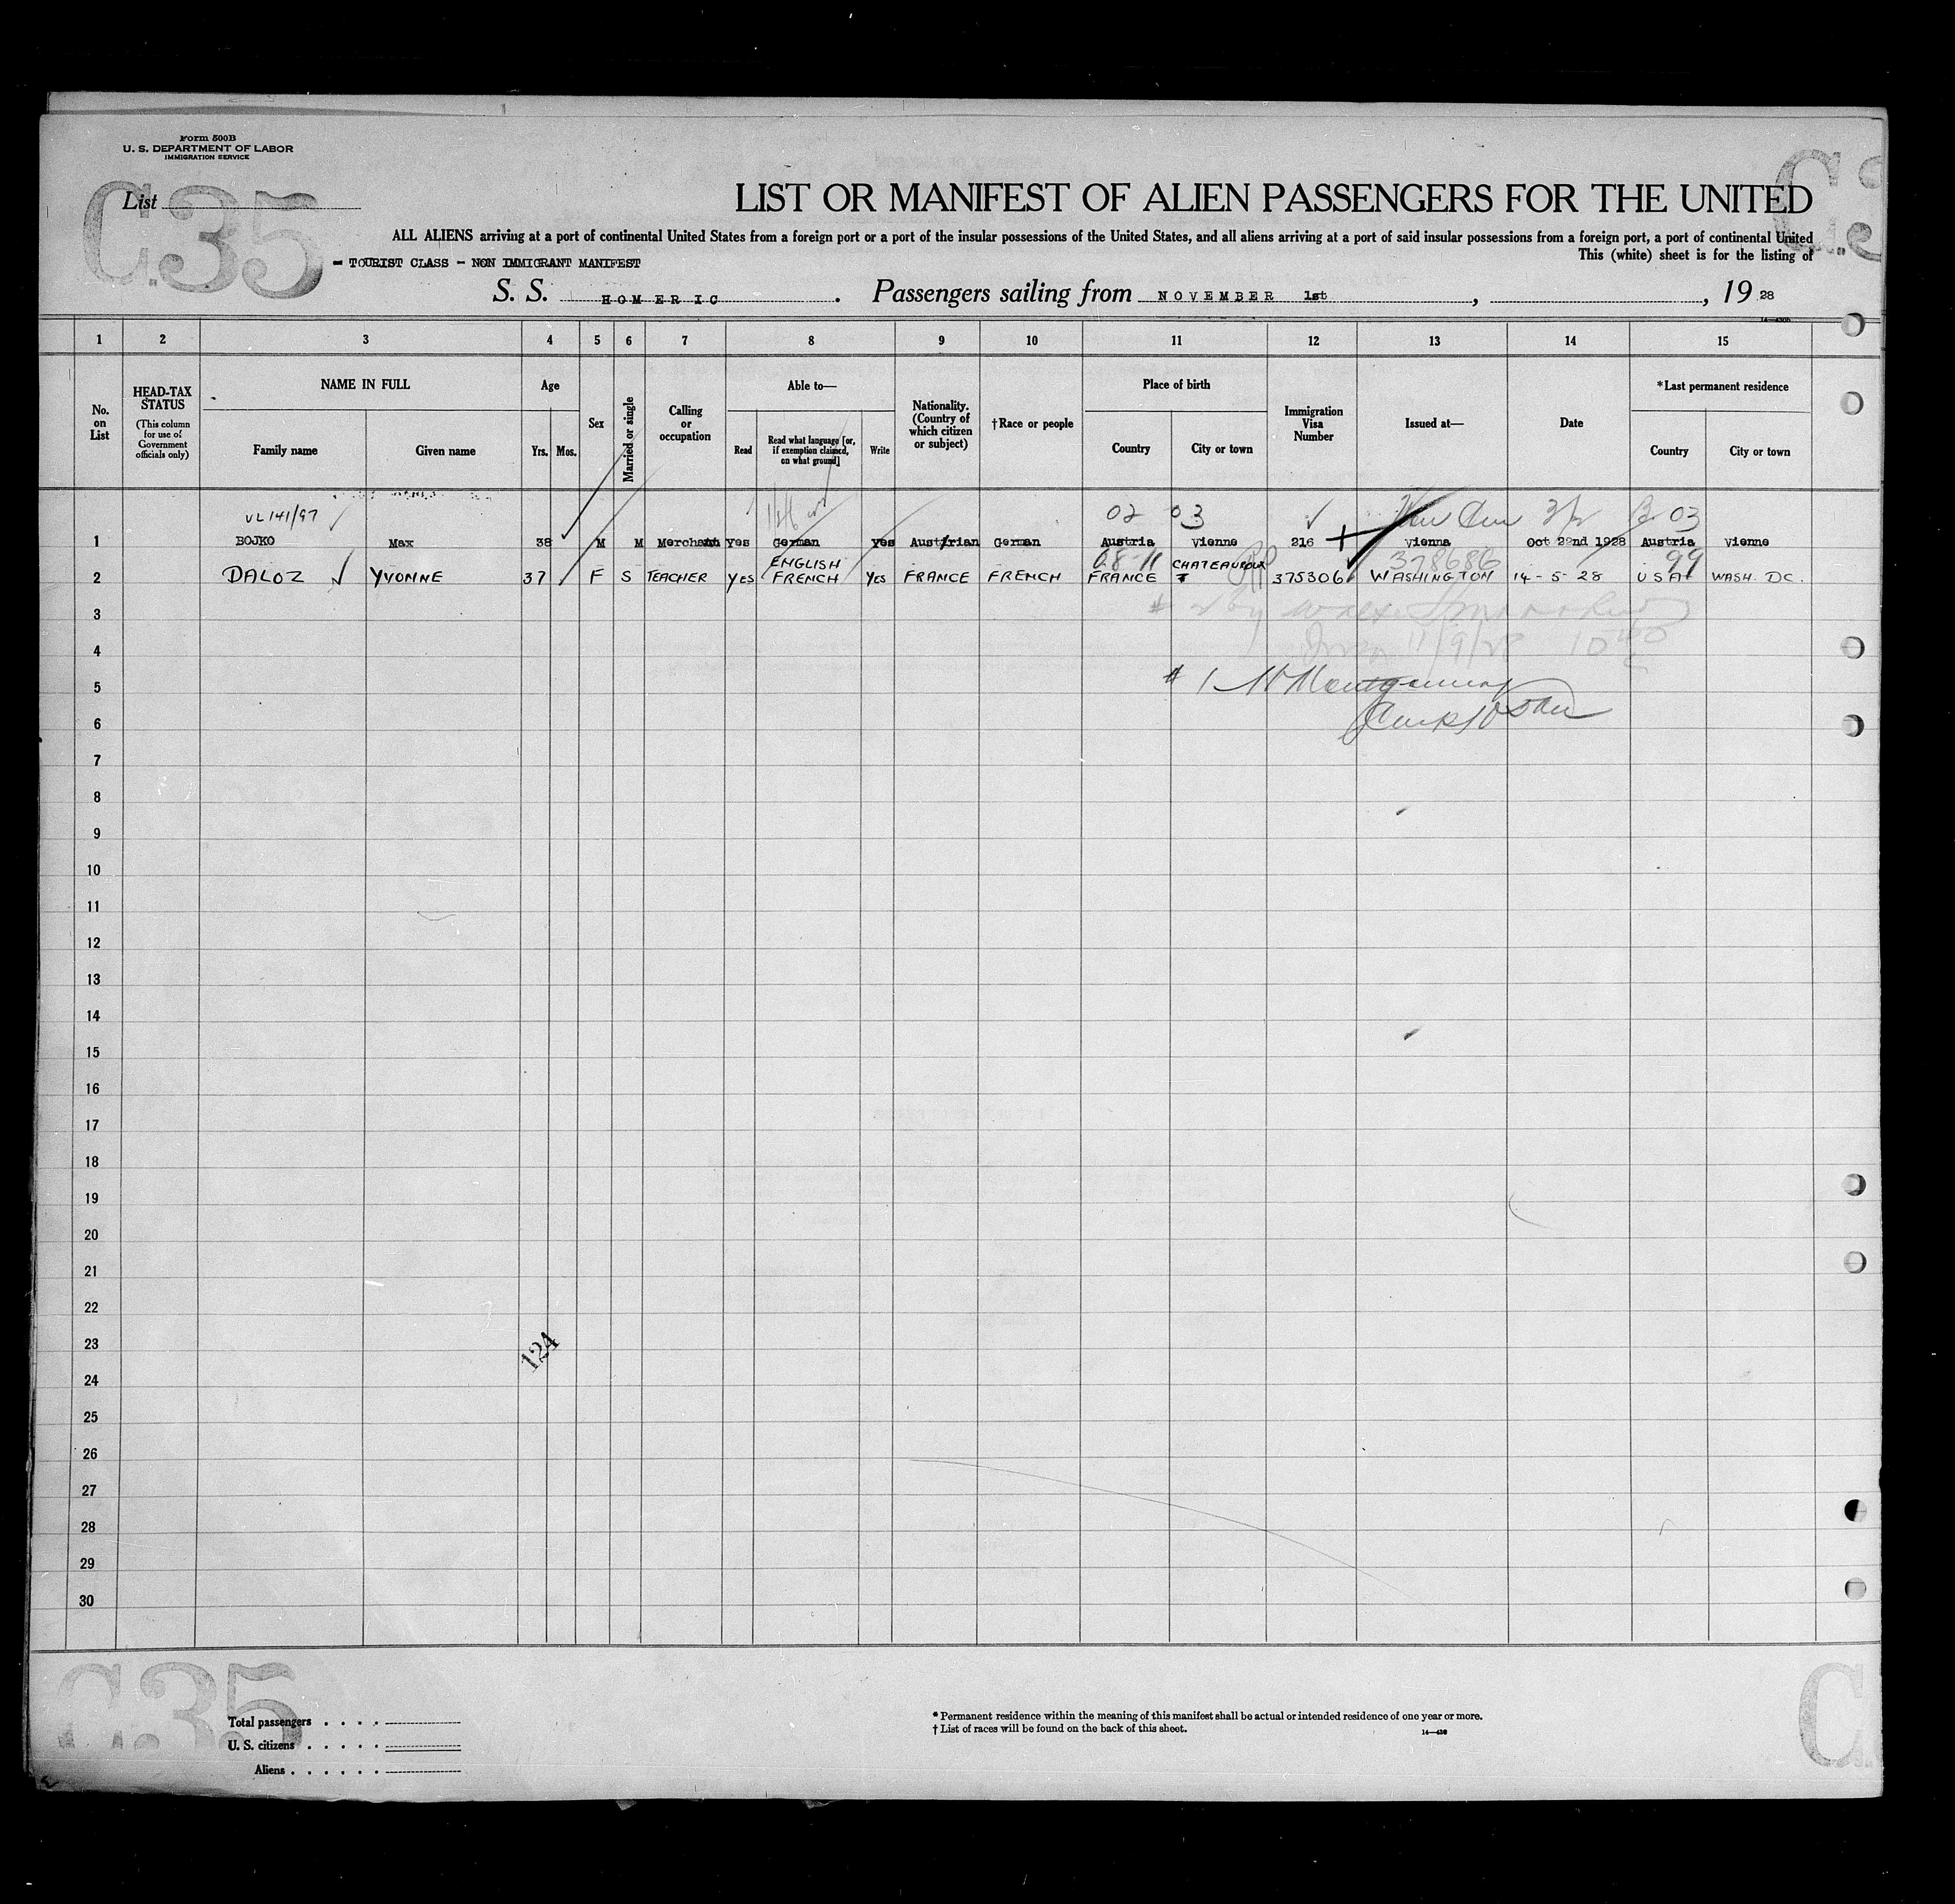 Form 500B
U. S. DEPARTMENT OF LABOR
IMMIGRATION SERVICE
C.35
C.3
List
LIST OR MANIFEST OF ALIEN PASSENGERS FOR THE UNITED
ALL ALIENS arriving at a port of continental United States from a foreign port or a port of the insular possessions of the United States, and all aliens arriving at a port of said insular possessions from a foreign port, a port of continental United
- TOURIST CLASS - NON IMMIGRANT MANIFEST
This (white) sheet is for the listing of
S. S. HOMERIC. Passengers sailing from NOVEMBER 1st, , 19 28
1 2 3 4 5 6 7 8 9 10 11 12 13 14 15
No. on List
HEAD-TAX STATUS
(This column for use of Government officials only)
NAME IN FULL
Family name
Given name
Age
Yrs. Mos.
Sex
Married or single
Calling or occupation
Able to—
Read
Read what language [or, if exemption claimed, on what ground]
Write
Nationality. (Country of which citizen or subject)
†Race or people
Place of birth
Country
City or town
Immigration Visa Number
Issued at—
Date
*Last permanent residence
Country
City or town
VL 141/97 02 03 03
1 BOJKO Max 38 M M Merchant Yes German Yes Austrian German Austria Vienne 216 Vienna Oct 22nd 1928 Austria Vienne
ENGLISH 08-11 CHATEAUROUX 378686 99
2 DALOZ YVONNE 37 F S TEACHER Yes FRENCH Yes FRANCE FRENCH FRANCE 375306 WASHINGTON 14-5-28 USA WASH. DC.
3
4 11/9/28
5 # 1 Montgomery
6
7
8
9
10
11
12
13
14
15
16
17
18
19
20
21
22
23
124
24
25
26
27
28
29
30
C.35
C
Total passengers
U. S. citizens
Aliens
* Permanent residence within the meaning of this manifest shall be actual or intended residence of one year or more.
† List of races will be found on the back of this sheet.
14—430